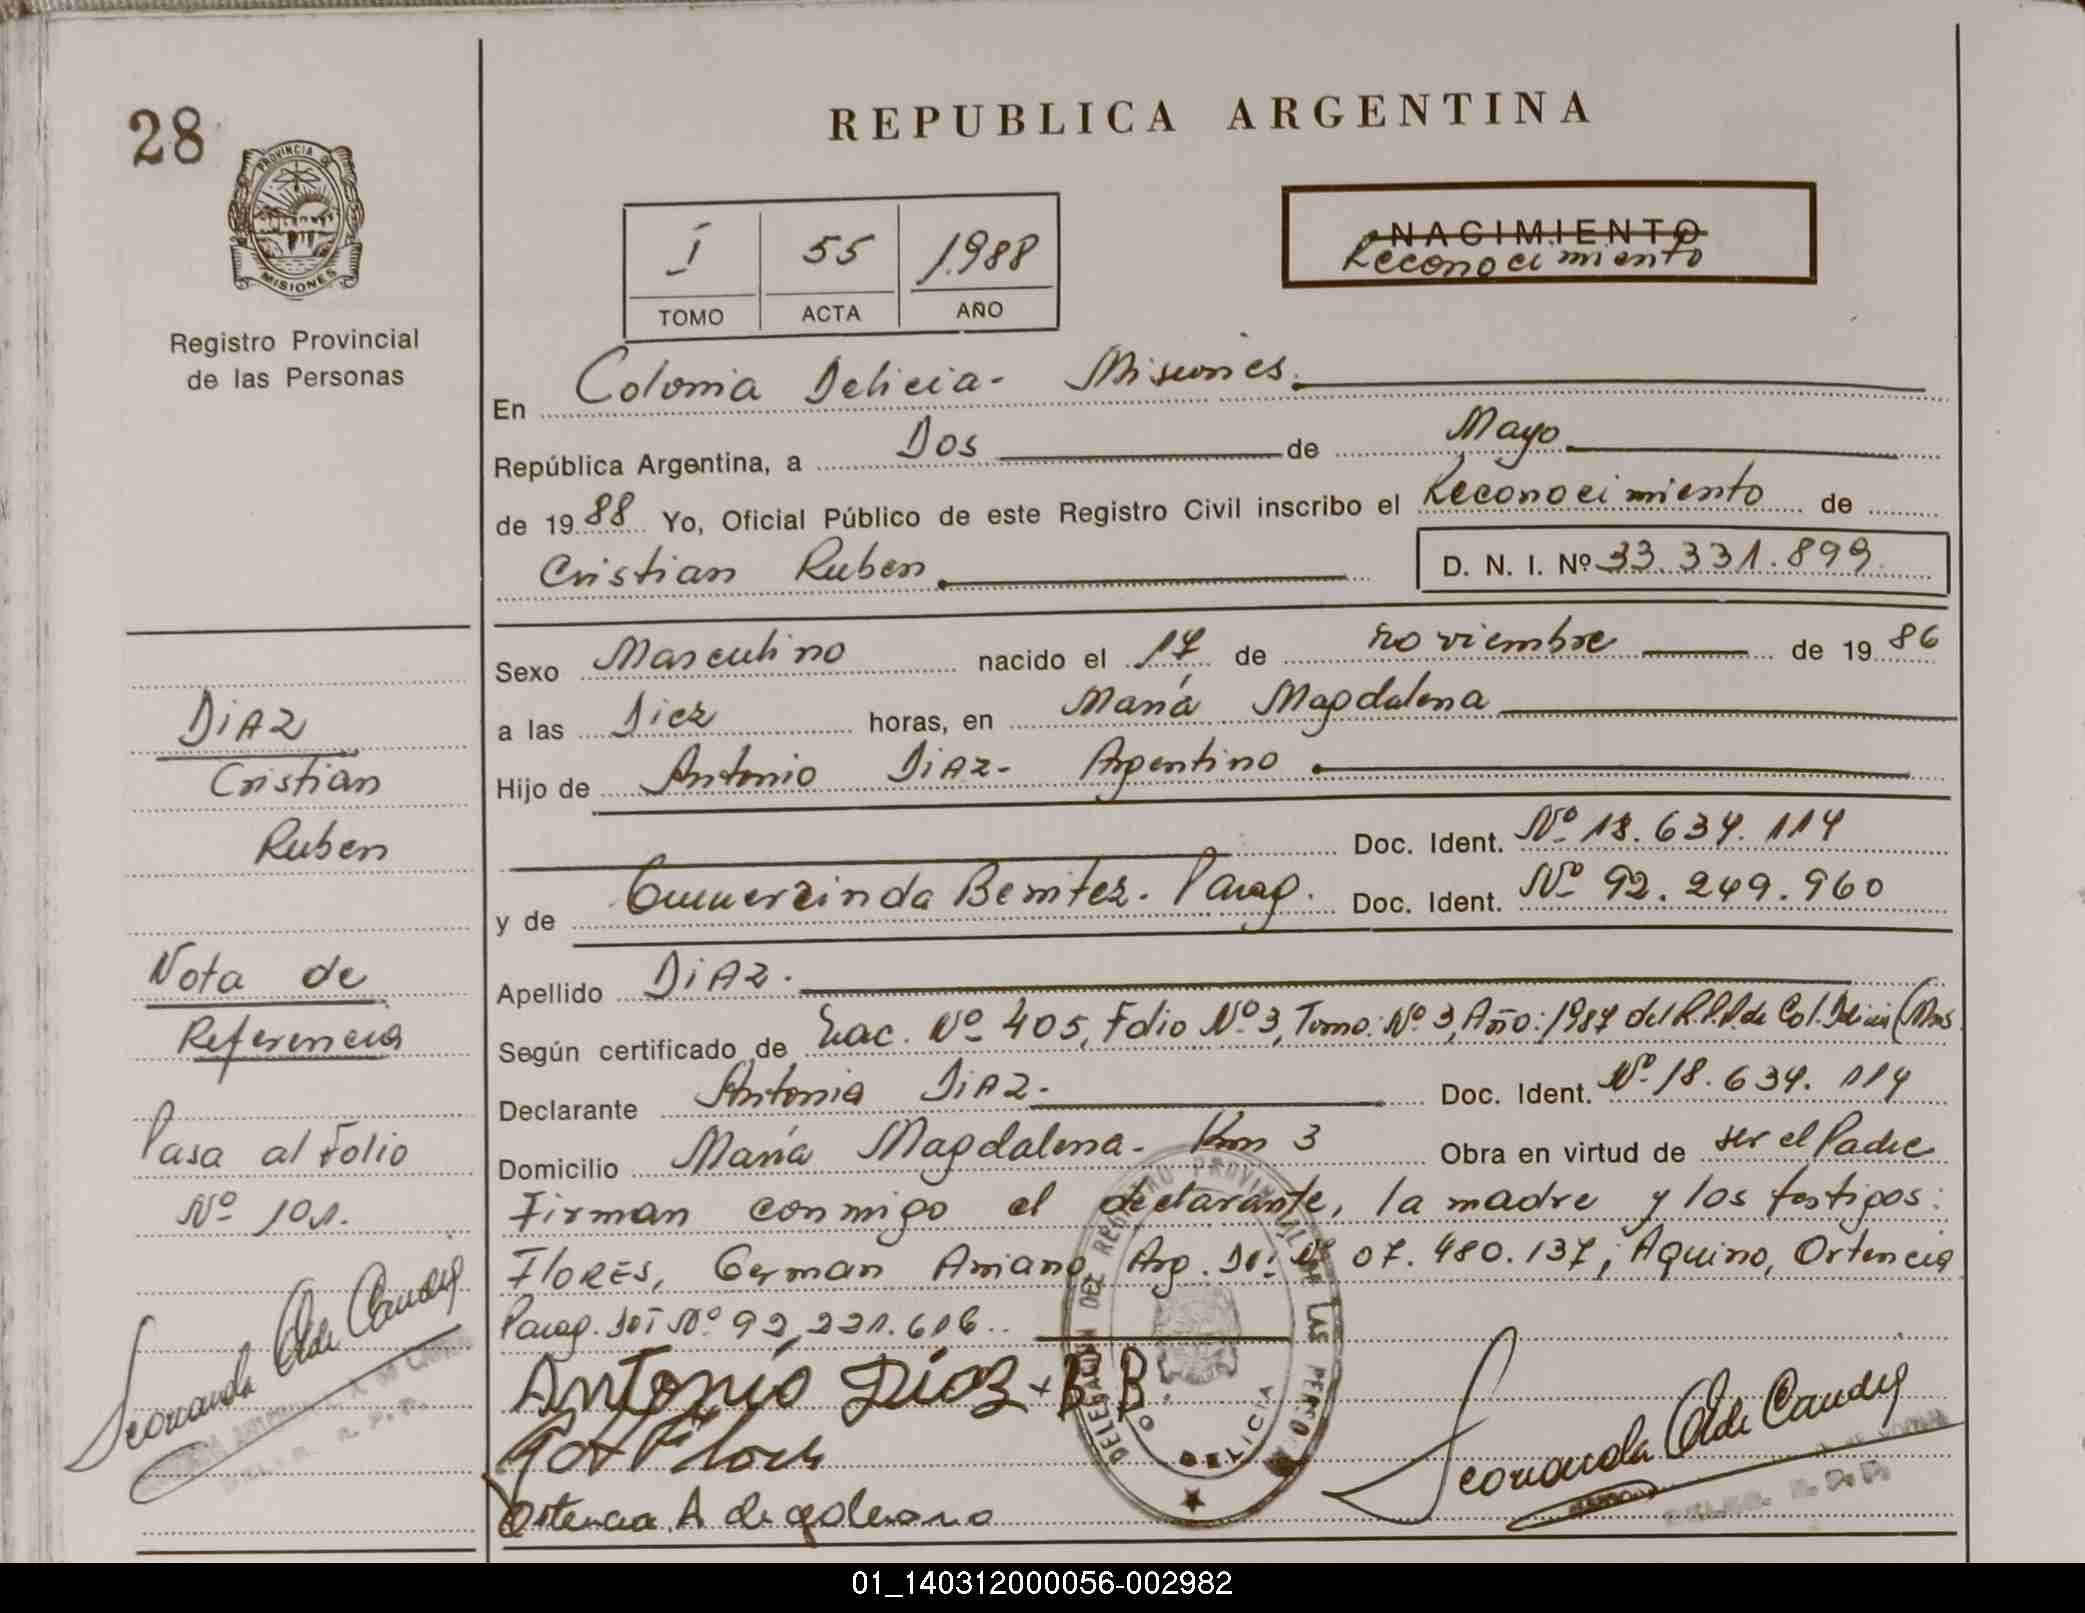 28
REPUBLICA ARGENTINA
PROVINCIA DE
MISIONES
Registro Provincial
de las Personas
I 55 1.988
TOMO ACTA AÑO
NACIMIENTO
Reconocimiento
En Colonia Delicia - Misiones.
República Argentina, a Dos de Mayo
de 1988 Yo, Oficial Público de este Registro Civil inscribo el Reconocimiento de
Cristian Ruben D. N. I. Nº 33.331.899
Sexo Masculino nacido el 17 de noviembre de 1986
a las Diez horas, en María Magdalena
Hijo de Antonio DIAZ - Argentino
Doc. Ident. Nº 18.634.114
y de Gumerzinda Benitez. Parag. Doc. Ident. Nº 92.249.960
Apellido DIAZ.
Según certificado de Nac. Nº 405, Folio Nº 3, Tomo: Nº 3, Año: 1987 del R.P.P. de Col. Delicia (Mns
Declarante Antonio DIAZ - Doc. Ident. Nº 18.634.114
Domicilio María Magdalena - Km 3 Obra en virtud de ser el Padre
Firman conmigo el declarante, la madre y los testigos:
FLORES, German Aniano, Arg. DNI Nº 07.480.137; Aquino, Ortencia
Parag. DNI Nº 92.221.616..
Antonio Díaz + B B
Ortencia A de
DIAZ
Cristian
Ruben
Nota de
Referencia
Pasa al Folio
Nº 101.
DELEGACION DEL REGISTRO PROVINCIAL DE LAS PERSONAS
C. DELICIA
01_140312000056-002982